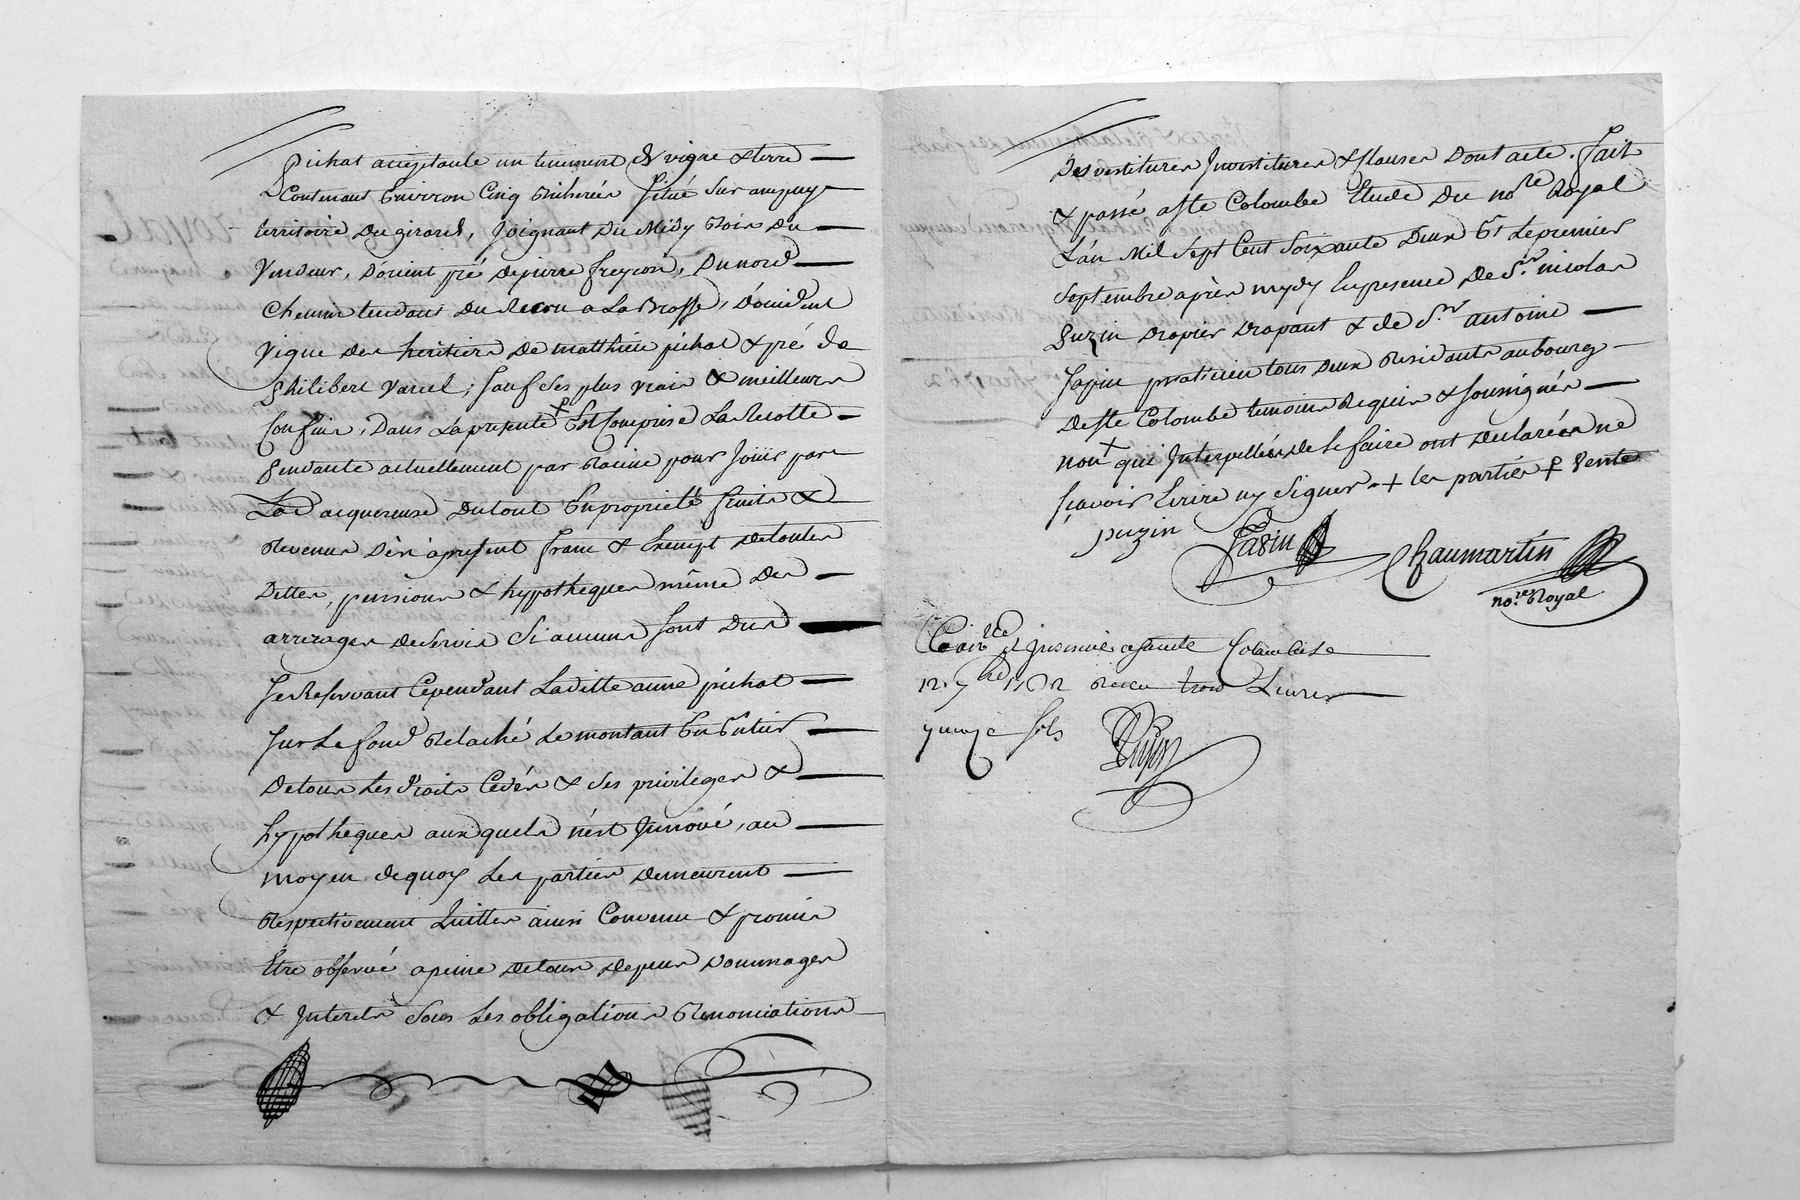 pichat acceptante un tenement de vigne & terre
Contenant Environ Cinq bicherées Situé Sur ampuy
territoire Du girard, Joignant Du Midy bois Du
Vendeur, D'orient pré de pierre freycon, Du nord
Chemin tendant Du Recru a La Brosse, D'occident
Vigne des heritiers De matthieu pichat & pré de
philibert Varcel; Sauf Ses plus vrais & meilleurs
Confins, Dans La presente + Est Comprise La Recolte
pendante actuellement par Racine pour Jouir par
Lad acquereuse Du tout En propriété fruits &
Revenus Dès à present franc & Exempt De toutes
Dettes, pensions & hypotheques même Des
arrerages De Servis Si aucuns Sont Dus
Se Reservant Cependant Laditte anne pichat
Sur Le fond Relaché Le montant En Entier
De tous Les Droits Cédés & Ses privileges &
hypotheques aux quels n'est Innové, au
moyen de quoy Les parties Demeurent
Respectivement Quittes ainsi Convenu & promis
Etre observé a peine De tous Depens Dommages
& Interets Sous Les obligations Renonciations
Desvestitures Investitures & Clauses Dont acte. Fait
& passé a Ste Colombe Etude Du no.re Royal
L'an Mil Sept Cent Soixante Deux Et Le premier
Septembre après mydy En presence De S.r nicolas
puzin Drapier Drapant & de S.r antoine
praticien tous Deux Residants au bourg
De Ste Colombe temoins Requis & Soussignés
non + qui Interpellées de le faire ont declarées ne
sçavoir Ecrire ny Signer. + les parties Vente
puzin
Chaumartin
no.re Royal
Con.lé & Insinué a Sainte Colombe Le
12. 7bre 1762 Recu trois Livres
quinze sols